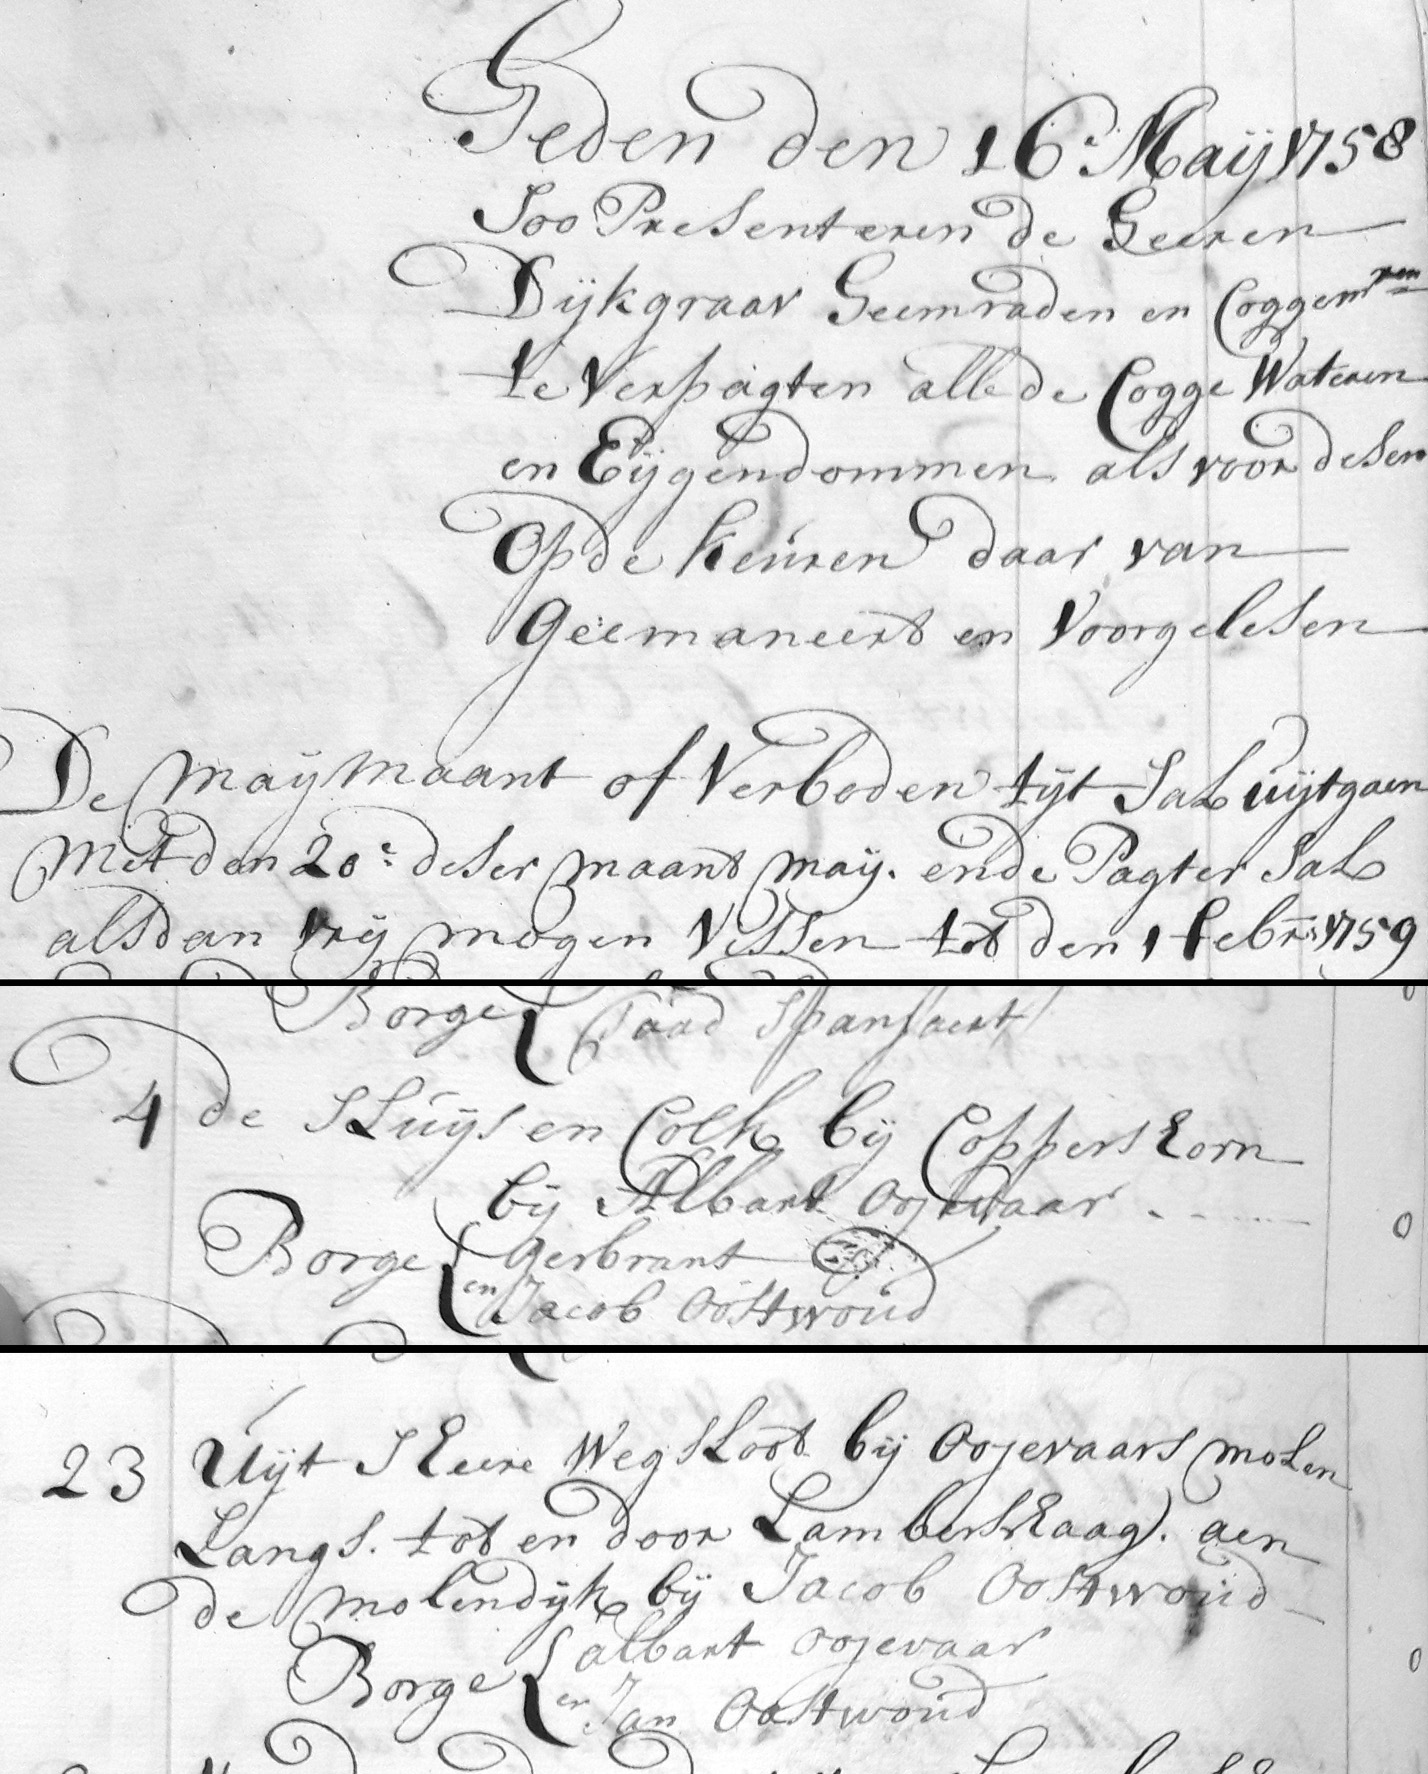 Heden den 16 Maij 1758
Soo Presenteren de Heeren
Dijkgraav Heemraden en Coggemren
te Verpagten alle de Cogge Wateren
en Eijgendommen als voor desen
Op de keuren daar van
Geemaneert en Voorgelesen
De maijmaant of Verboden tijt Sal uijtgaen
Met den 20e deser maant maij. en de Pagter Sal
als dan vrij mogen Vissen tot den 1 febrs 1759
Borge Taad Spansaert
4 de Sluijs en Colk bij Coppershorn
bij Albart Oojevaar
0
Borge Gerbrant
en Jacob Oostwoud
23 Uijt S Heere Weg Sloot bij Oojevaars molen
Langs. tot en door Lambertskaag. aen
de molendijk bij Jacob Oostwoud
Borge albart oojevaar
0
en Jan Oostwoud